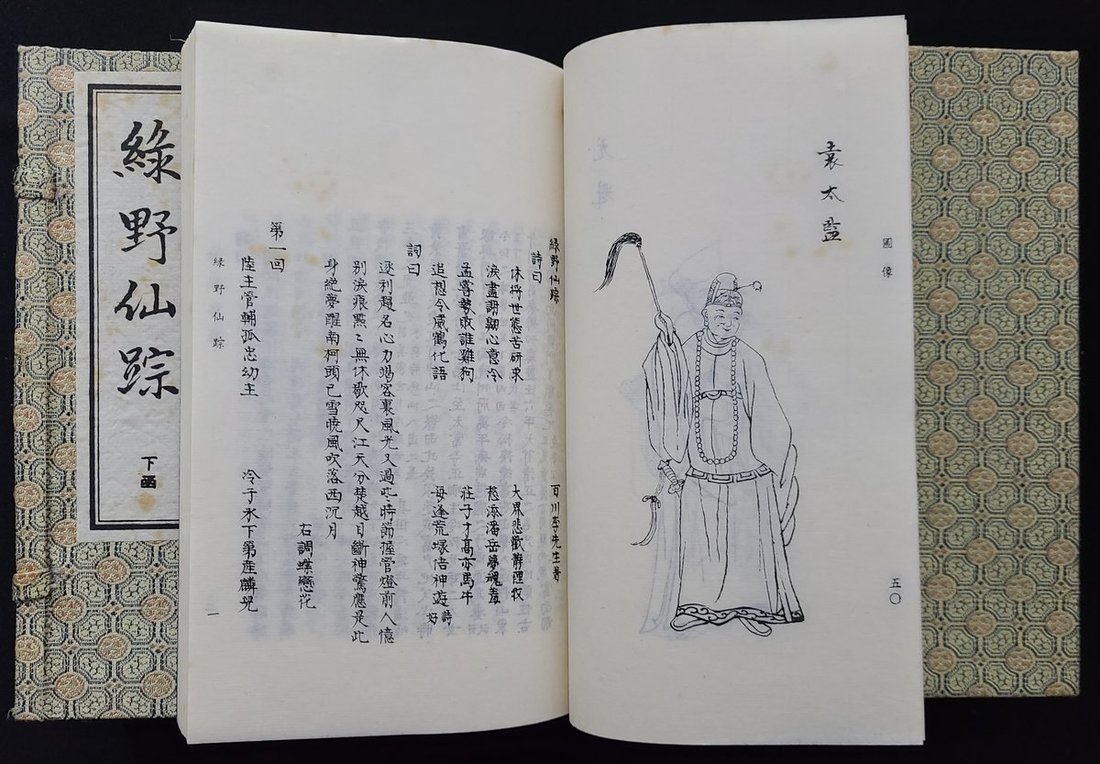 圖像
五〇
袁太監
綠野仙踪 百川李先生著
詩曰
休將世態苦研求 大界悲歡靜裡收
淚盡謝翱心意冷 愁添潘岳夢魂羞
孟嘗勢敗誰雞狗 莊子才高亦馬牛
追想令威鶴化語 每逢荒塚倍神遊 好詩
詞曰
逐利趨名心力竭客裏風光又過些時節握管燈前人憶
別淚痕點〻無休歇咫尺江天分楚越目斷神驚應是此
身絕夢醒南柯頭已雪曉風吹落西沉月
右調蝶戀花
第一回
陸主管輔孤忠幼主 冷子氷下第產麟兒
綠野仙踪
一
綠野仙踪
下函